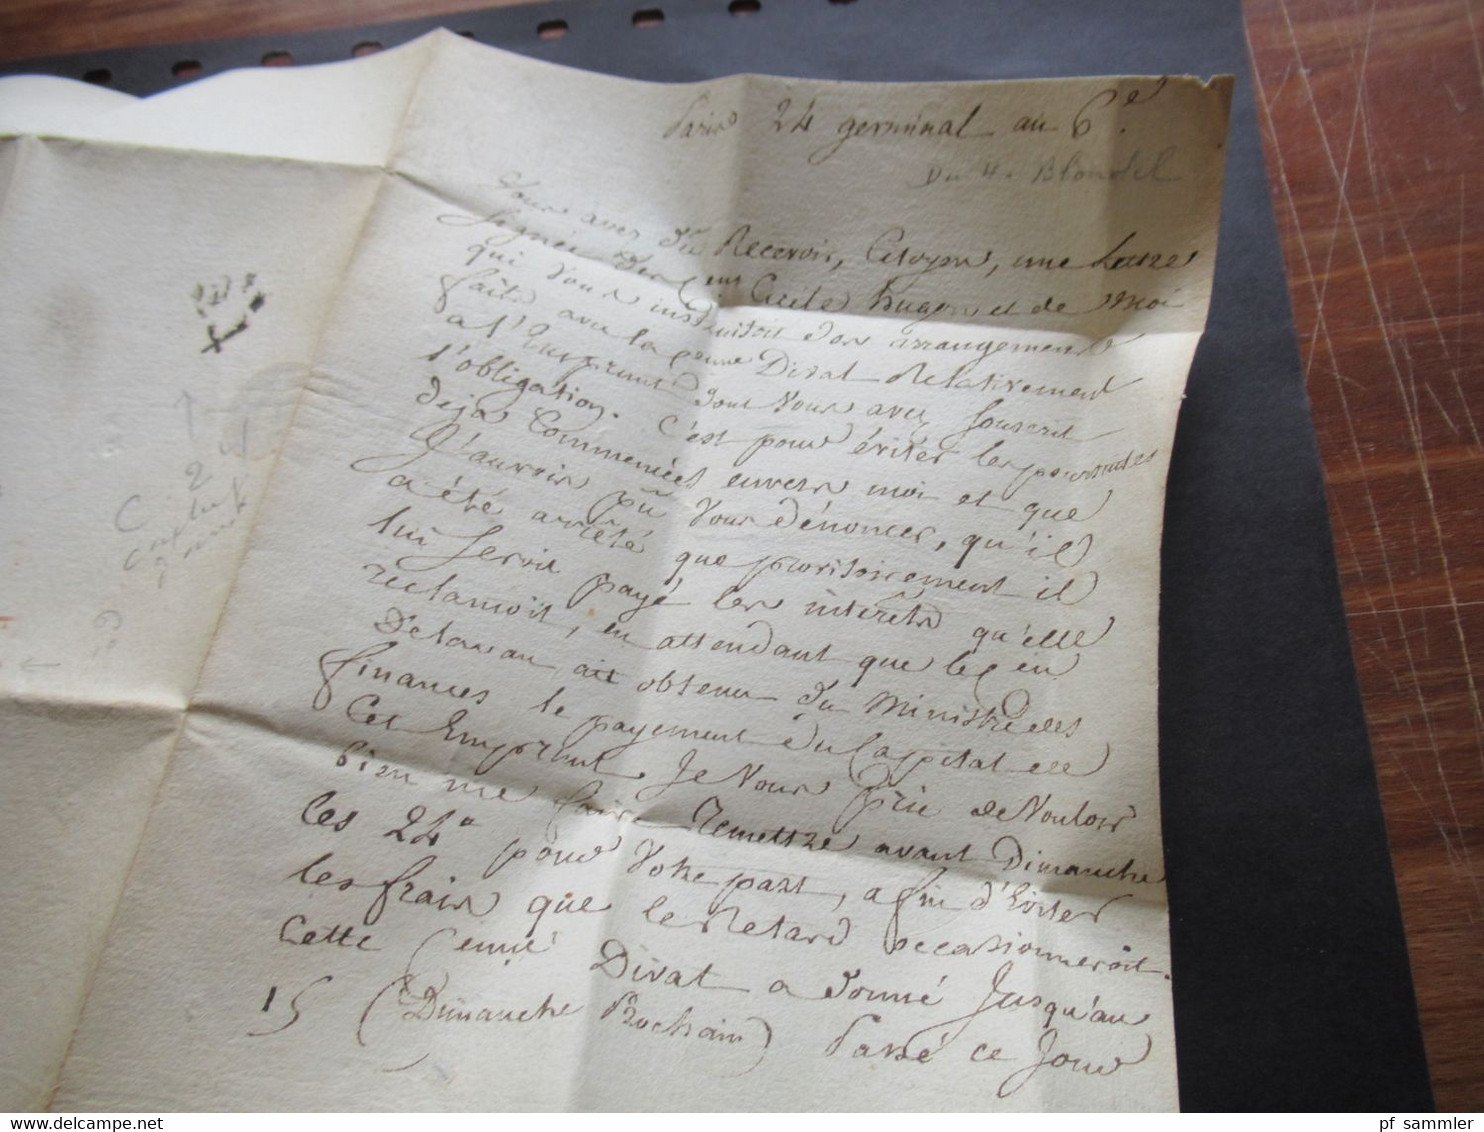 Paris 24 germinal an 6e.
Du 4. Blondel
Vous avez dû Recevoir, Citoyen, une Lettre
Signée des Cens Cecile hugon et de Moi
qui Vous instruisoit des arrangemens
faits avec la Cenne Divat Relativement
a l'Emprunt dont Vous avez Souscrit
l'obligation. C'est pour éviter les poursuites
deja Commencées envers moi et que
J'aurois pû Vous dénoncer, qu'il
a été arrêté que provisoirement il
lui seroit payé les intérêts qu'elle
reclamoit, en attendant que le Cen
Delavau ait obtenu du Ministre des
finances le payement du Capital de
Cet Emprunt. Je Vous prie de Vouloir
bien me faire Remettre avant Dimanche
les 24# pour Votre part, afin d'Eviter
les frais que le Retard occasionneroit.
Cette Cenne Divat a donné Jusqu'au
15 (Dimanche Prochain) Passé ce Jour
C
2
pf sammler